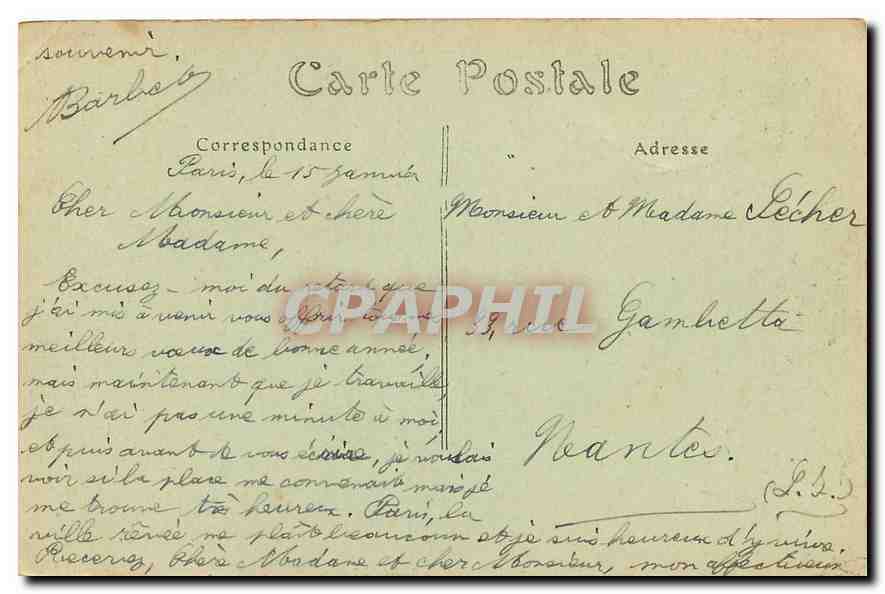 souvenir.
Barbet
Carte Postale
Correspondance
Adresse
Paris, le 15 Janvier
Cher Monsieur et chère
Madame,
Excusez-moi du retard que
j'ai mis à venir vous offrir tous mes
meilleurs vœux de bonne année,
mais maintenant que je travaille,
je n'ai pas une minute à moi,
et puis avant de vous écrire, je voulais
voir si la place me convenait mais je
me trouve très heureux. Paris, la
ville rêvée me plaît beaucoup et je suis heureux d'y vivre.
Recevez, chère Madame et cher Monsieur, mon affectueux
Monsieur et Madame Pécher
33, rue Gambetta
Nantes.
(L. I.)
CPAPHIL